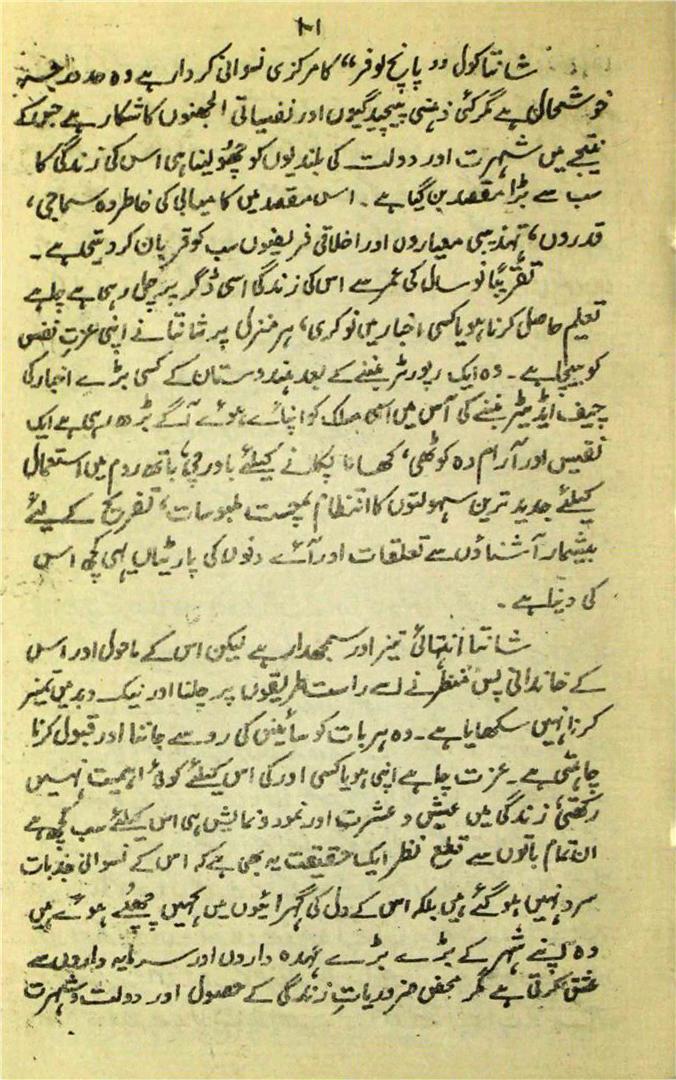 ۱۰۱
شانتا کول "پانچ لوفر" کا مرکزی نسوانی کردار ہے وہ حد درجہ
خوشحال ہے مگر کئی ذہنی پیچیدگیوں اور نفسیاتی الجھنوں کا شکار ہے جس کے
نتیجے میں شہرت اور دولت کی بلندیوں کو چھو لینا ہی اس کی زندگی کا
سب سے بڑا مقصد بن گیا ہے۔ اس مقصد میں کامیابی کی خاطر وہ سماجی،
قدروں، تہذیبی معیاروں اور اخلاقی فریضوں سب کو قربان کر دیتی ہے۔
تقریباً نو سال کی عمر سے اس کی زندگی اسی ڈگر پر چل رہی ہے چاہے
تعلیم حاصل کرنا ہو یا کسی اخبار میں نوکری، ہر منزل پر شانتا نے اپنی عزتِ نفس
کو بیچا ہے۔ وہ ایک رپورٹر بننے کے بعد ہندوستان کے کسی بڑے اخبار کی
چیف ایڈیٹر بننے کی آس میں اسی مسلک کو اپنائے ہوئے آگے بڑھ رہی ہے ایک
نفیس اور آرام دہ کوٹھی، کھانا پکانے کیلئے باورچی، باتھ روم میں استعمال
کیلئے جدید ترین سہولتوں کا انتظام چست ملبوسات، تفریح کے لئے
بیشمار آشناؤں سے تعلقات اور آئے دنوں کی پارٹیاں یہی کچھ اس
کی دنیا ہے۔
شانتا انتہائی تیز اور سمجھدار ہے لیکن اس کے ماحول اور اس
کے خاندانی پس منظر نے اسے راست طریقوں پر چلنا اور نیک و بد میں تمیز
کرنا نہیں سکھایا ہے۔ وہ ہر بات کو سائینس کی رو سے جاننا اور قبول کرنا
چاہتی ہے۔ عزت چاہے اپنی ہو یا کسی اور کی اس کیلئے کوئی اہمیت نہیں
رکھتی، زندگی میں عیش و عشرت اور نمود و نمایش ہی اس کیلئے سب کچھ ہے
ان تمام باتوں سے قطع نظر ایک حقیقت یہ بھی ہے کہ اس کے نسوانی جذبات
سرد نہیں ہو گئے ہیں بلکہ اس کے دل کی گہرائیوں میں کہیں چھپے ہوئے ہیں
وہ اپنے شہر کے بڑے بڑے عہدہ داروں اور سرمایہ داروں سے
عشق کرتی ہے مگر محض ضروریاتِ زندگی کے حصول اور دولت و شہرت